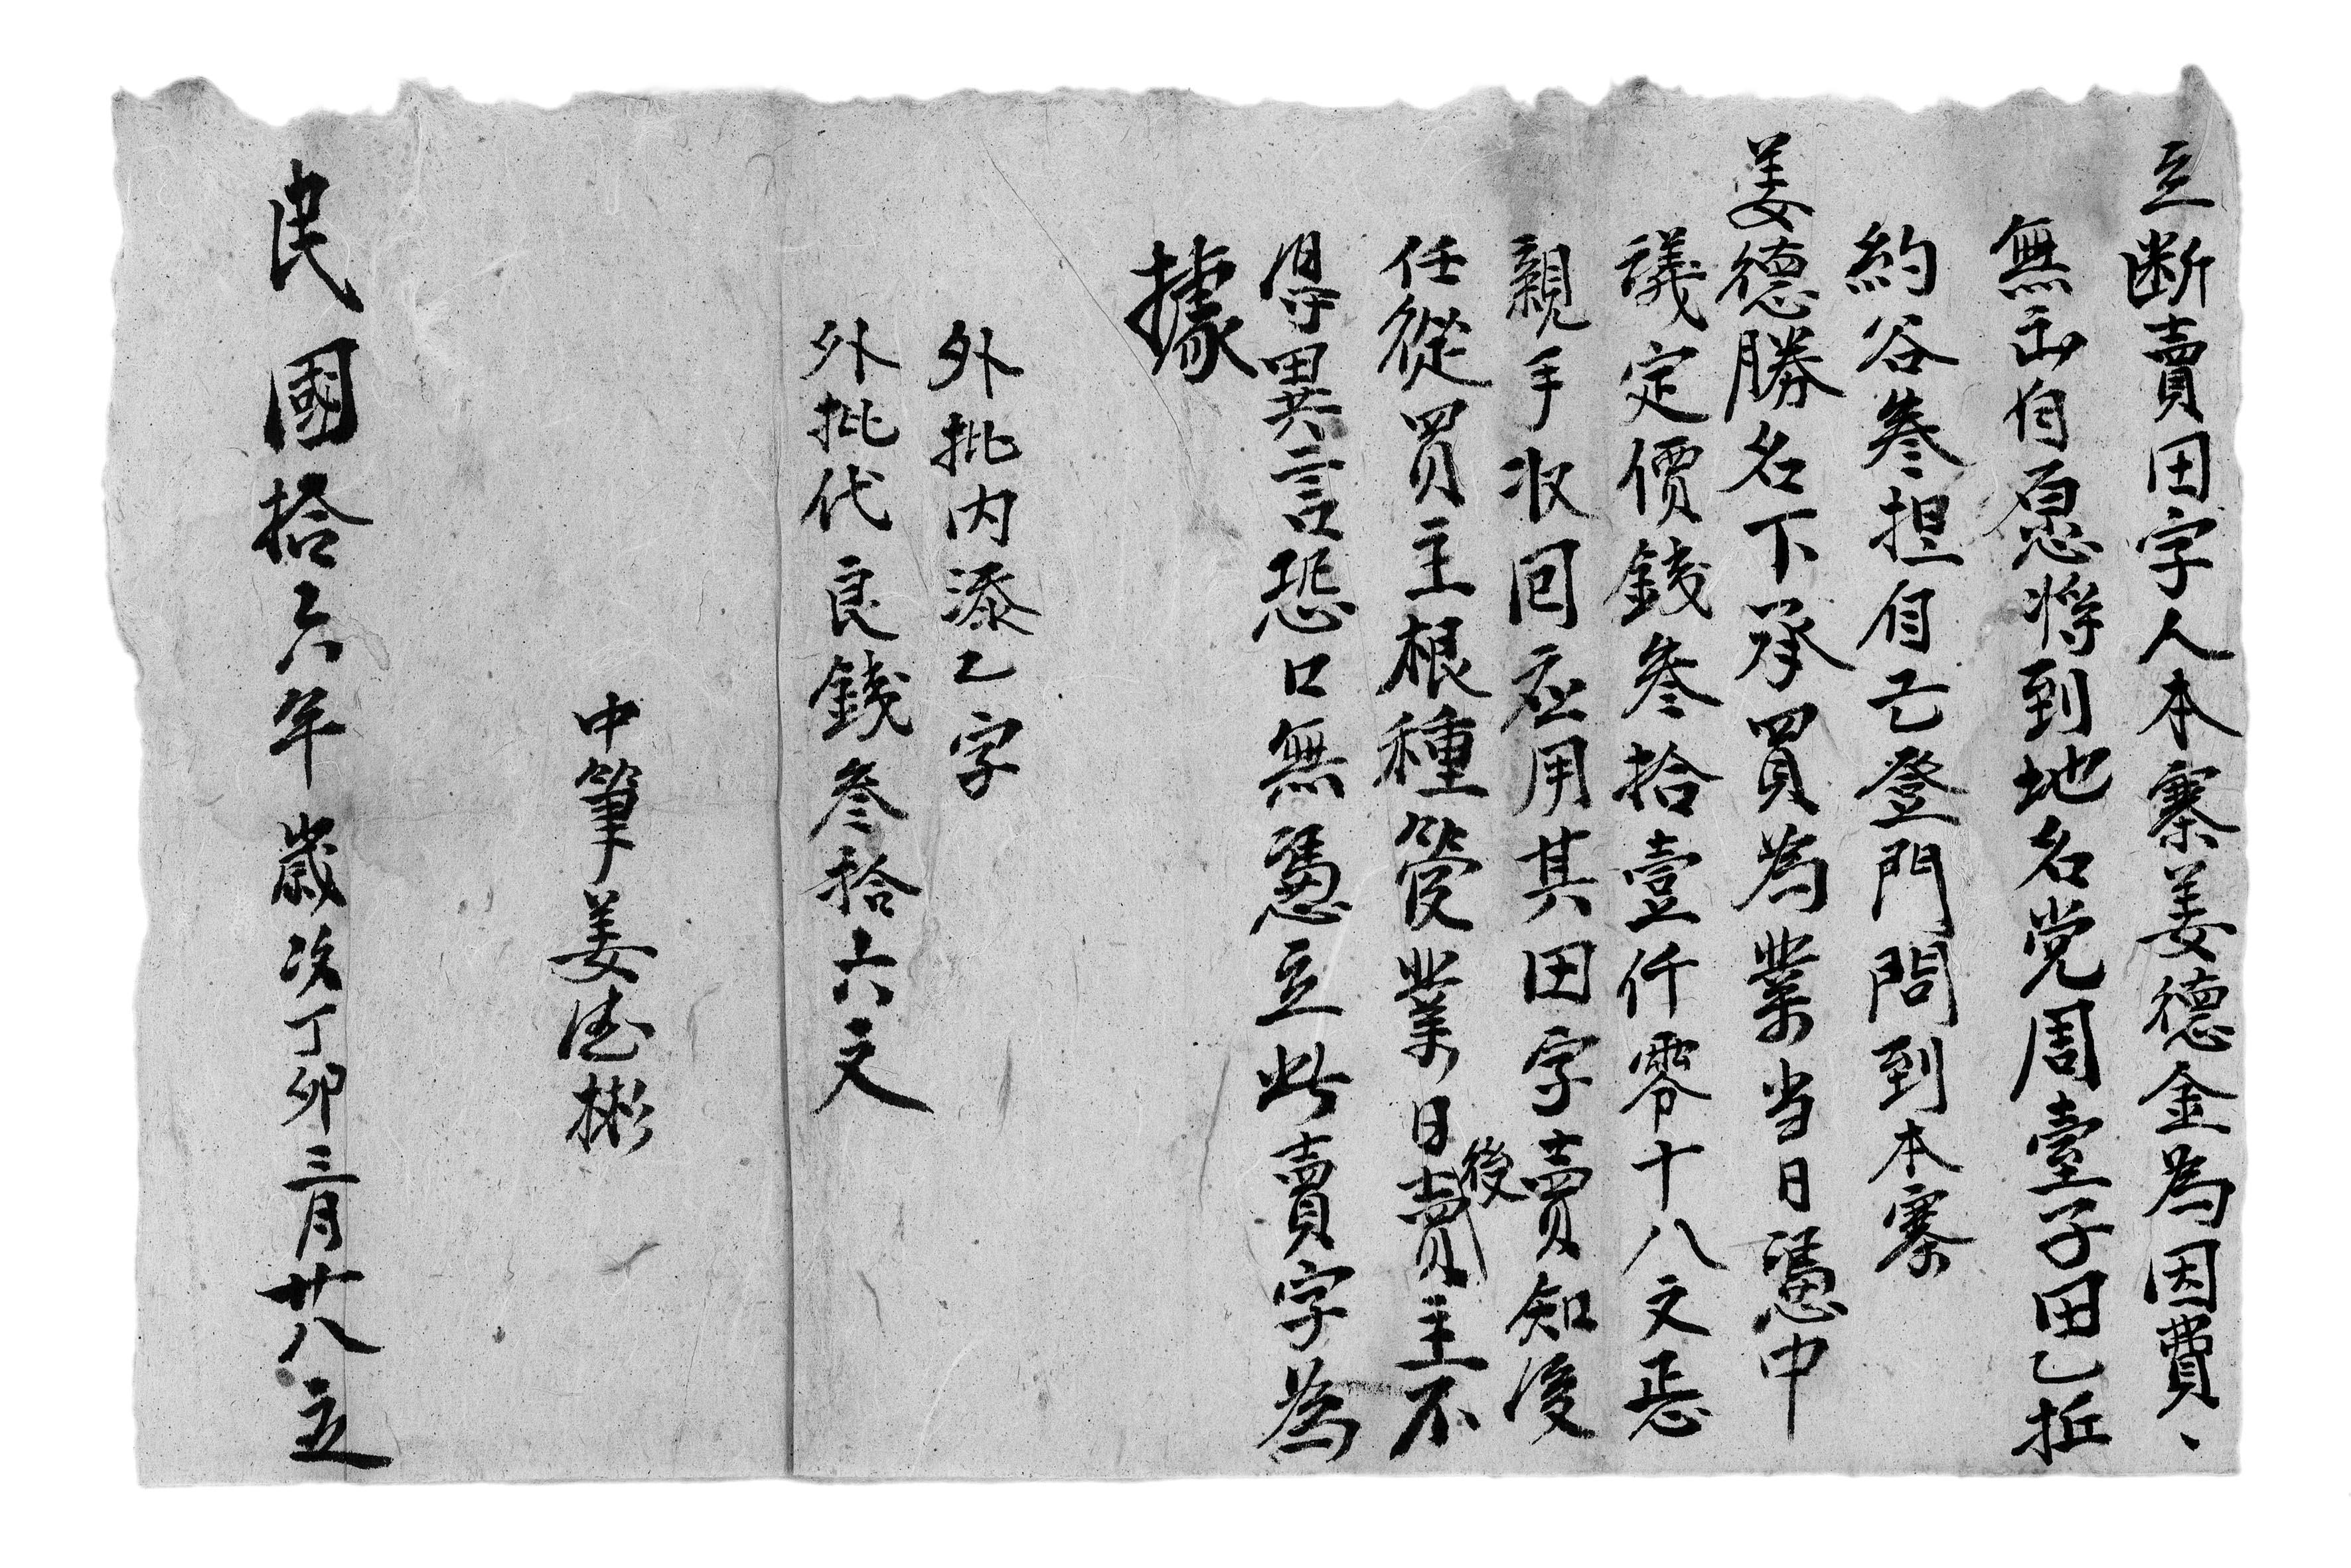 立断賣田字人本寨姜德金為因費、
無出自愿将到地名党周臺子田乙坵
約谷叁担自己登門問到本寨
姜德勝名下承買為業当日憑中
議定價錢叁拾壹仟零十八文恁
親手收回应用其田字賣知後
任從買主根種管業日後賣主不
得異言恐口無憑立此賣字為
據
外批内添乙字
外批代良錢叁拾六文
中筆姜德彬
民國拾六年歲次丁卯三月廿八立